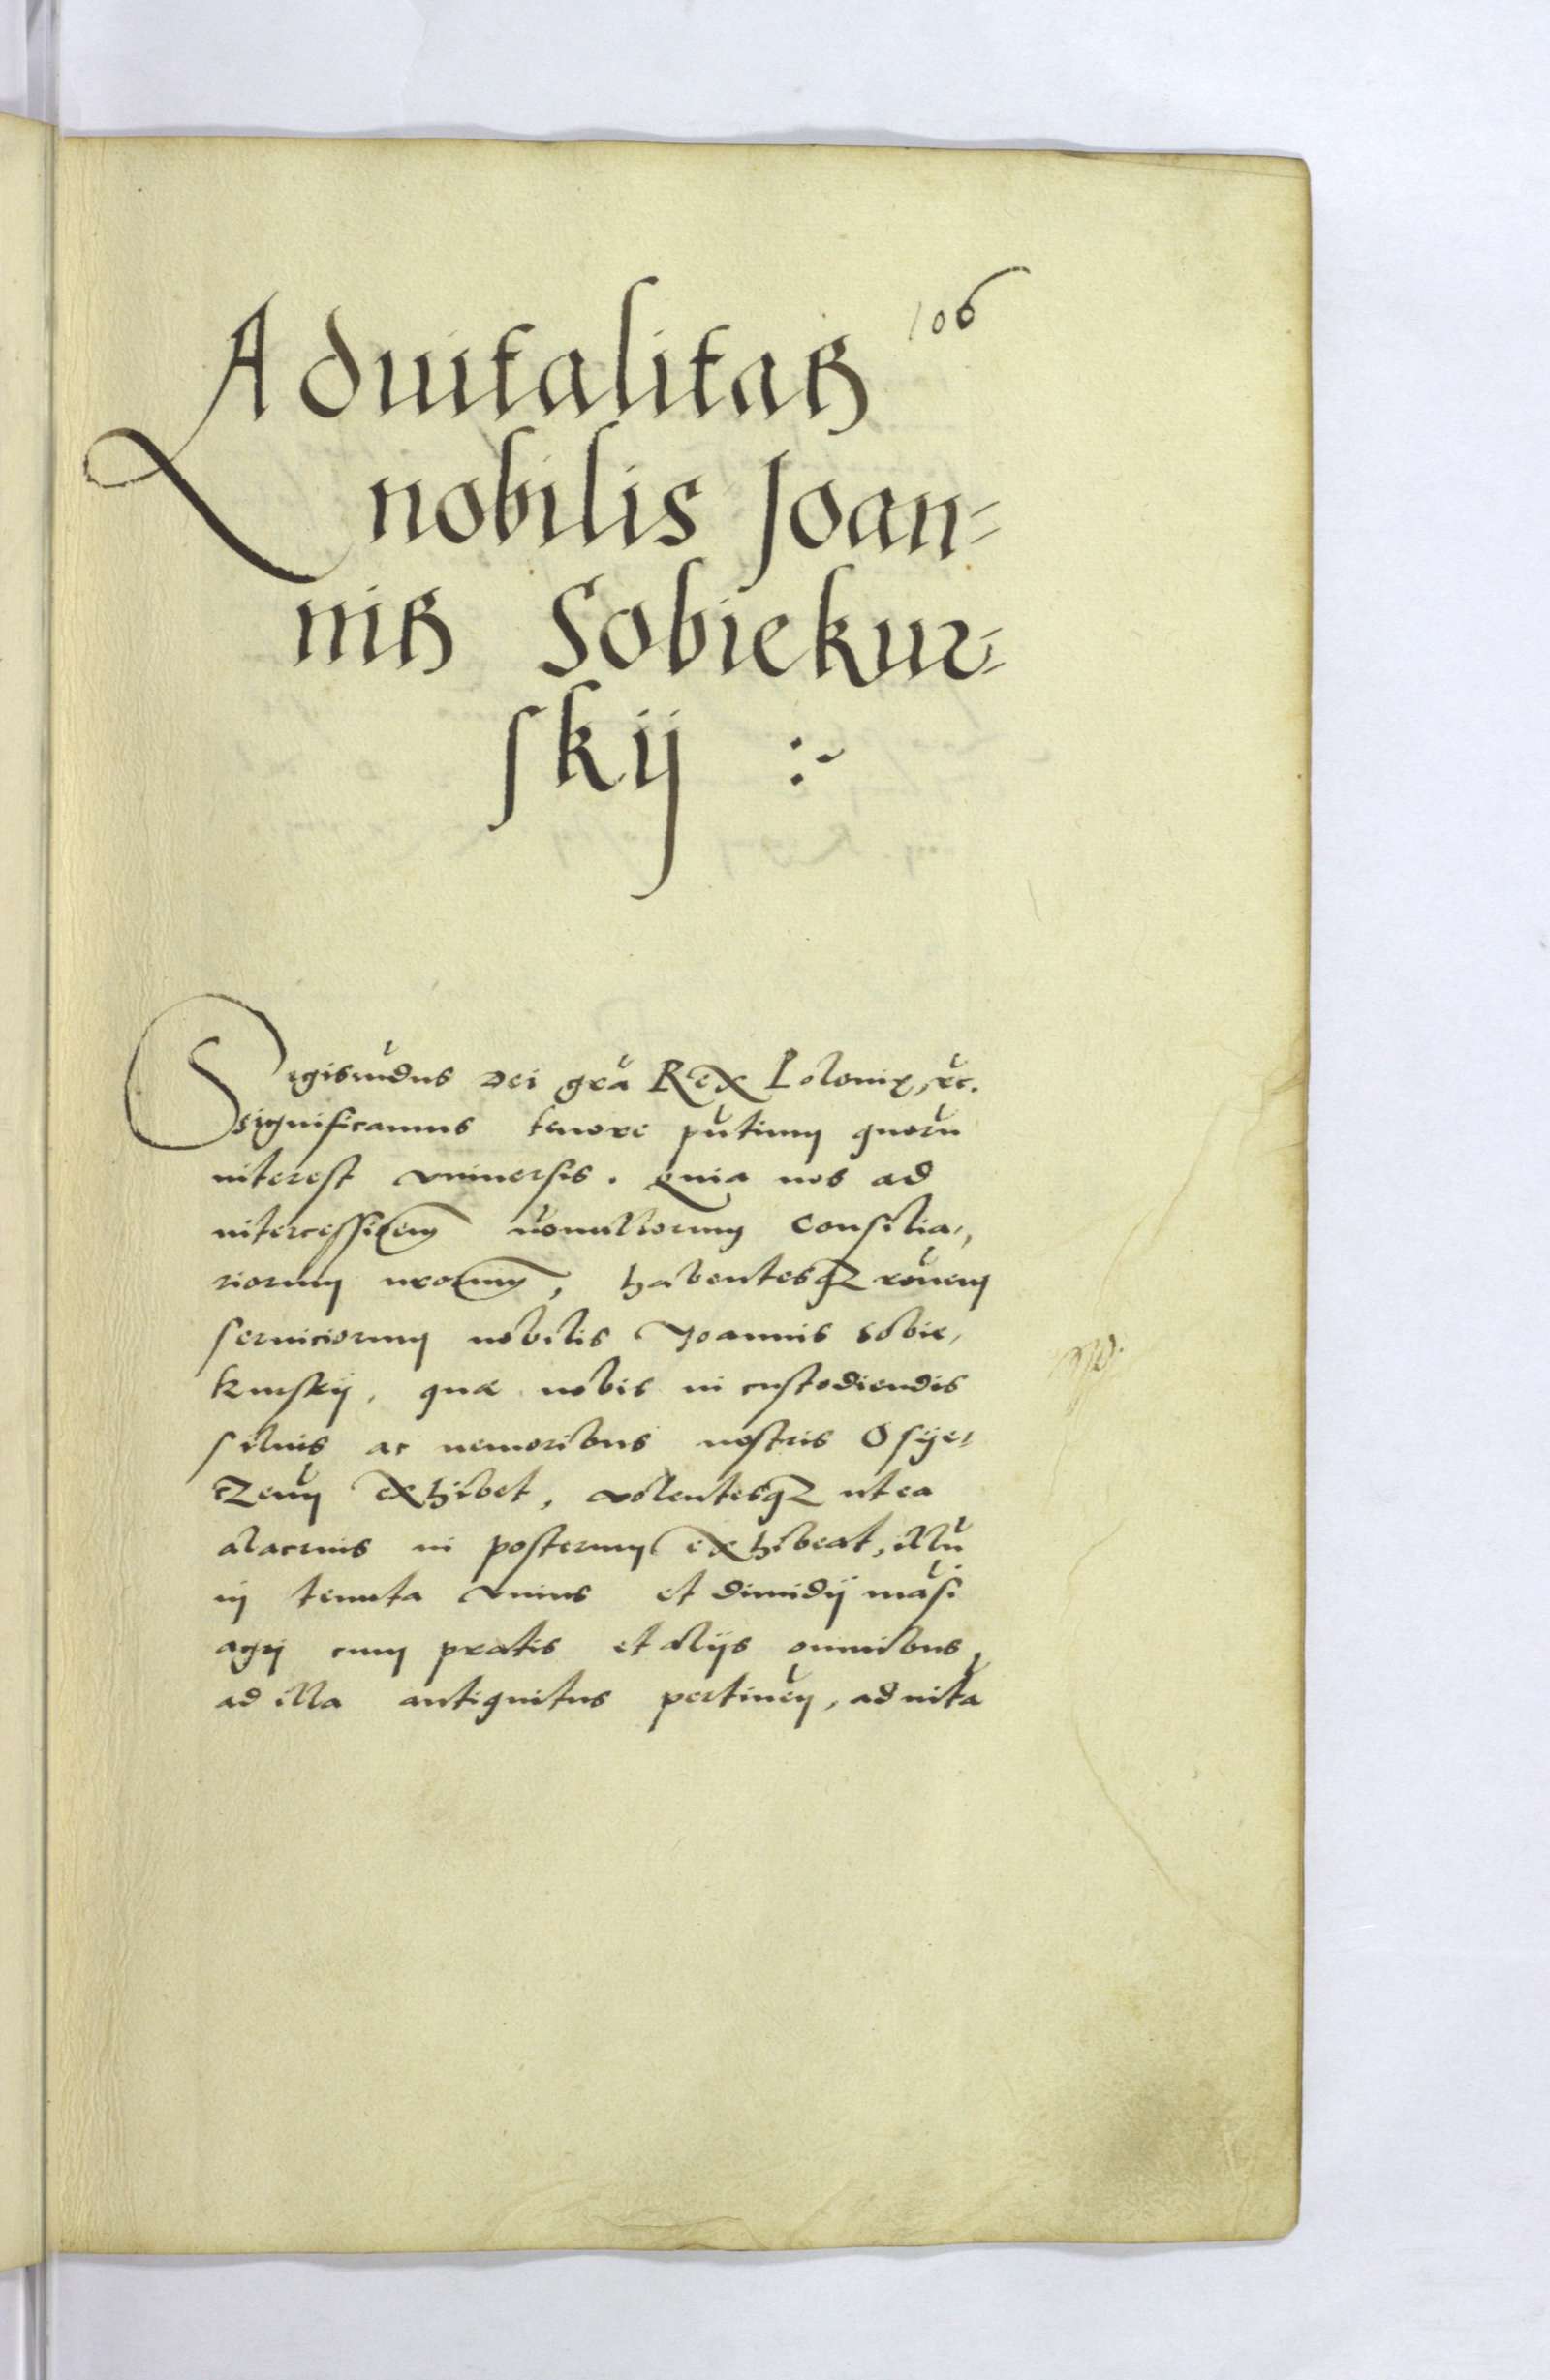 106
Aduitalitas
nobilis Joan=
nis Sobiekur=
skij :~
Sigismūdus Dei grā Rex Poloniæ, &c.
significamus tenore pūtium quorū
interest vniuersis. Quia nos ad
intercessioem nōnullorum Consilia,
riorum nrorum, habentesqz rōnem
seruiciorum nobilis Joannis Sobie,
kurskij, quæ nobis in custodiendis
siluis ac nemoribus nostris Osije,
czeń exhibet, volentesqz ut ea
alacrius in posterum exhibeat, illū
in tenuta vnius et dimidij māsi
agri cum pratis et alijs omnibus,
ad illa antiquitus pertineń, ad uitā